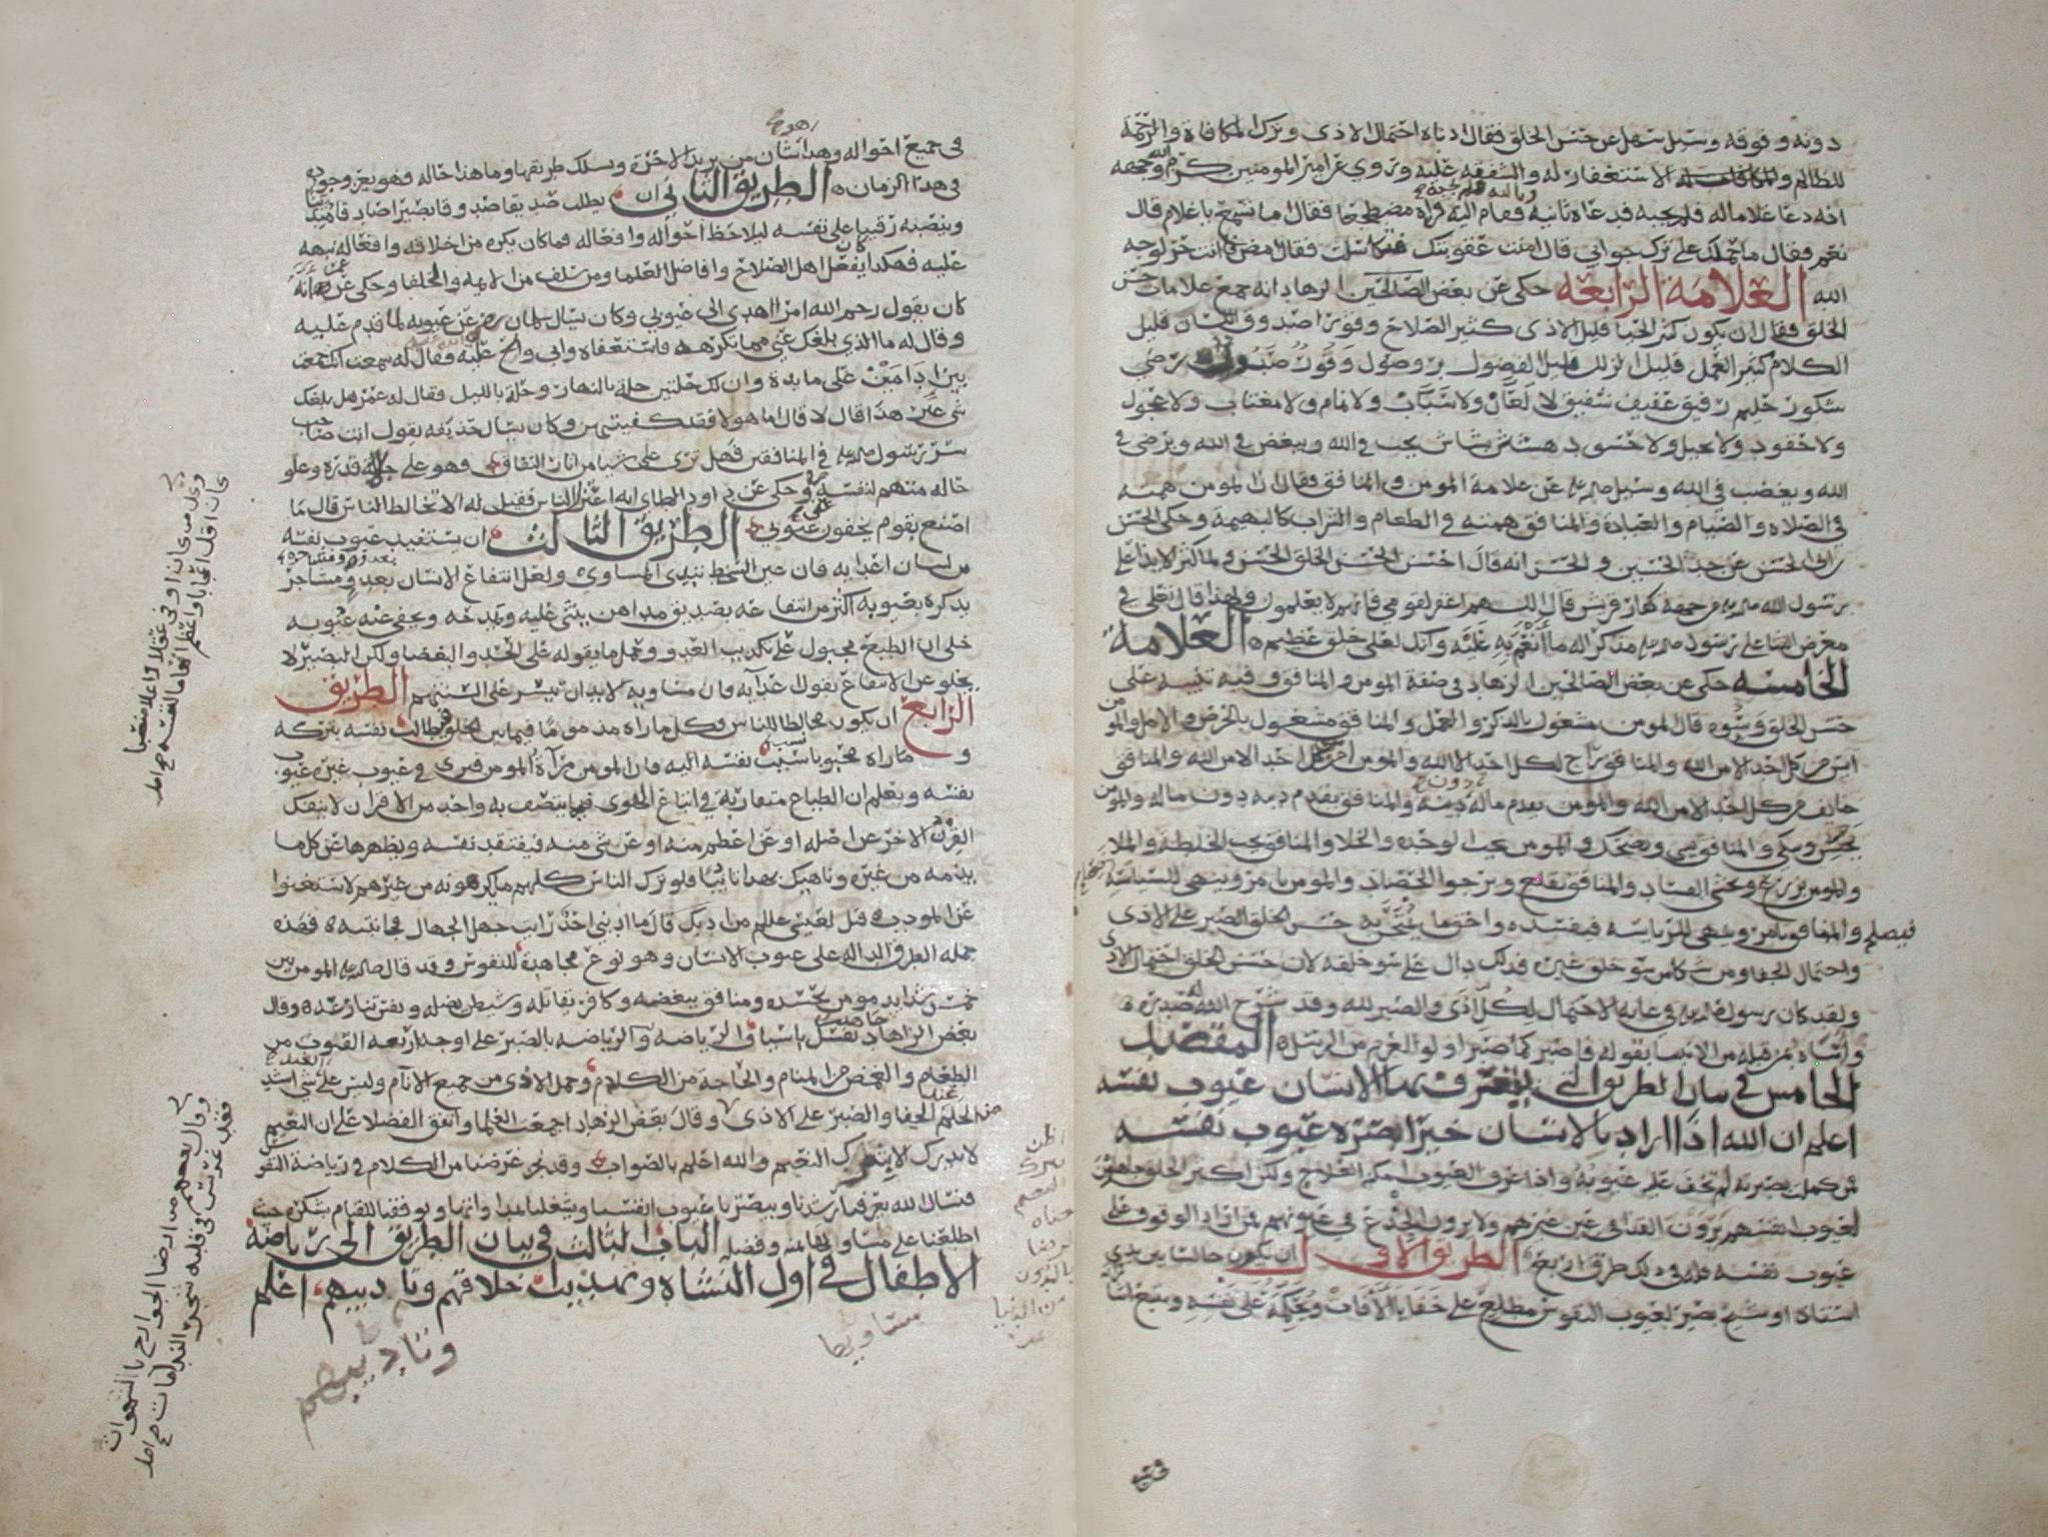 دونه وفوقه وسيل سهل عن حسن الخلق فقال ادناه احتمال الاذى وترك المكافاة والرحمة
للظالم والاستغفار له والشفقه عليه وروي عن امير المومنين كرم الله وجهه
انه دعا غلاما له فلم يجبه فدعاه ثانيه فقام اليه فراه مضطجعا فقال اما تسمع يا غلام قال
نعم فقال ما حملك على ترك جوابي قال امنت عقوبتك فتكاسلت فقال امض فانت حر لوجه
الله العلامة الرابعه حكى عن بعض الصالحين الزهاد انه جمع علامات حسن
الخلق فقال ان يكون كثير الحيا قليل الاذى كثير الصلاح وقورا صدوق اللسان قليل
الكلام كثير العمل قليل الزلل قليل الفضول بر وصول وقور صبور رضي
شكور حليم رفيق عفيف شفيق لا لعان ولا سباب ولا نمام ولا مغتاب ولا عجول
ولا حقود ولا بخيل ولا حسود هشاش بشاش يحب في الله ويبغض في الله ويرضى في
الله ويغضب في الله وسيل صلى الله عليه عن علامة المومن والمنافق فقال ان المومن همته
في الصلاه والصيام والعبادة والمنافق همته في الطعام والشراب كالبهيمة وحكى الحسن
عن الحسن عن جد الحسين انه قال احسن الحسن الخلق الحسن
رسول الله كفار قريش قال اللهم اغفر لقومي فانهم لا يعلمون ولهذا قال تعالى في
معرض الثنا على رسوله وانك لعلى خلق عظيم العلامة
الخامسه حكى عن بعض الصالحين الزهاد في صفة المومن والمنافق وفيه تنبيه على
حسن الخلق وسوه قال المومن مشغول بالذكر والعمل والمنافق مشغول بالحرص والامل والمومن
ايس من كل احد الا من الله والمنافق راج لكل احد الا الله والمومن امن من كل احد الا من الله والمنافق
خايف من كل احد الا من الله والمومن يقدم ماله دون دينه والمنافق يقدم دينه دون ماله والمومن
يحسن ويبكي والمنافق يسي ويضحك والمومن يحب الوحده والخلا والمنافق يحب الخلطة والملا
والمومن يزرع ويخشى الفساد والمنافق يقلع ويرجو الحصاد والمومن يامر وينهى للسياسة
فيصلح والمنافق يامر وينهى للرياسه فيفسده واحق ما يمتحن به حسن الخلق الصبر على الاذى
واحتمال الجفا ومن شكا من سو خلق غيره فذلك دال على سو خلقه لان حسن الخلق احتمال الاذى
ولقد كان رسول الله في غاية الاحتمال لكل اذى والصبر لله وقد شرح الله له صدره
من قبله من الانبيا بقوله فاصبر كما صبر اولو العزم من الرسل المقصد
الخامس في بيان الطريق التي يتعرف بها الانسان عيوب نفسه
اعلم ان الله اذا اراد بالانسان خيرا بصره عيوب نفسه
فمن كملت بصيرته لم تخف عليه عيوبه واذا عرف العيوب امكن العلاج ولكن اكثر الخلق جاهلون
لعيوب انفسهم يرون القذا في عين غيرهم ولا يرون الجذع في عيونهم فمن اراد الوقوف على
عيوب نفسه فله في ذلك طرق اربع الطريق الاول ان يكون جالسا بين يدي
استاذ او شيخ بصير لعيوب النفوس مطلع على خفايا الافات ويحكمه على نفسه ويتبع اشارته
في جميع
في جميع احواله وهذا شان من يريد الاخره وسلك طريقها وما هذا حاله فهو يعز وجوده
في هذا الزمان الطريق الثاني ان يطلب صديقا صدوقا بصيرا صادقا متدينا
وينصبه رقيبا على نفسه ليلاحظ احواله وافعاله فما كان يكره من اخلاقه وافعاله نبهه
عليه فهكذا كان يفعل اهل الصلاح وافاضل العلما ومن سلف من الايمه والخلفا وحكي عن عمر انه
كان يقول رحم الله امرا اهدى الي عيوبي وكان يسال سلمان عن عيوبه لما قدم عليه
وقال له ما الذي بلغك عني مما تكرهه فاستعفاه وابى والح عليه فقال له سمعت انك جمعت
بين ادامين على مايدة وان لك حلتين حلة بالنهار وحلة بالليل فقال له عمر هل بلغك
شي غير هذا قال لا قال اما هولا فقد كفيتهما وكان يسال حذيفه يقول انت صاحب
سر رسول الله في المنافقين فهل ترى علي شيا من اثار النفاق فهو على جلالة قدره وعلو
حاله متهم لنفسه وحكي عن داود الطاي انه اعتزل الناس فقيل له الا تخالط الناس قال ما
اصنع بقوم يخفون عني عيوبي الطريق الثالث ان يستفيد عيوب نفسه
من لسان اعدايه فان عين السخط تبدي المساوي ولعل انتفاع الانسان بعدو مشاجر
يذكره بعيوبه اكثر من انتفاعه بصديق مداهن يثني عليه ويمدحه ويخفي عنه عيوبه
خلى ان الطبع مجبول على تكذيب العدو وحمل ما يقوله على الحسد والبغضا ولكن البصير لا
يخلو عن الانتفاع بقول اعدايه فان مساويه لابد ان تنتشر على السنتهم الطريق
الرابع ان يكون مخالطا للناس وكل ما راه مذموما فيما بين الخلق فيطالب نفسه بتركه
وما راه محبوبا نسب نفسه اليه فان المومن مرآة المومن فيرى في عيوب غيره عيوب
نفسه ويعلم ان الطباع متقاربة في اتباع الهوى فما يتصف به واحد من الاقران لا ينفك
القرن الاخر عن اصله او عن اعظم منه او عن شي منه فيتفقد نفسه ويطهرها عن كل ما
يذمه من غيره وناهيك بهذا تاديبا فلو ترك الناس كلهم ما يكرهونه من غيرهم لاستغنوا
عن المودب قيل لعيسى عليلم من ادبك قال ما ادبني احد رايت جهل الجهال فجانبته فهذه
جمله الطرق الداله على عيوب الانسان وهو نوع مجاهدة للنفوس وقد قال المومن بين
خمس شدايد مومن يحسده ومنافق يبغضه وكافر يقاتله وشيطان يضله ونفس تنازعه وقال
بعض الزهاد جاهد نفسك باسياف الرياضه والرياضه بالصبر على اوجه اربعه القوت من
الطعام والغمض من المنام والحاجة من الكلام وحمل الاذى من جميع الانام وليس على شي اشد
من الحلم عند الجفا والصبر على الاذى وقال بعض الزهاد اجمعت العلما واتفق الفضلا على ان النعيم
لا يدرك الا بترك النعيم والله اعلم بالصواب وقد نجز غرضنا من الكلام في رياضة النفس
فنسال الله يعرفنا رشدنا ويبصرنا عيوب انفسنا ويشغلنا بمداواتها ويوفقنا للقيام بشكره حيث
اطلعنا على مساويها بمنه وفضله الباب الثالث في بيان الطريق الى رياضة
الاطفال في اول النشاه وتهذيب اخلاقهم وتاديبهم اعلم
وتاديبهم
مساويها
وكل من كان اوفى عقلا واعلا منصبا
كان اقل اعجابا واعظم اتهاما لنفسه
وقال بعضهم من ارضا الجوارح بالشهوات
فقد غرس في قلبه شجر الندامات